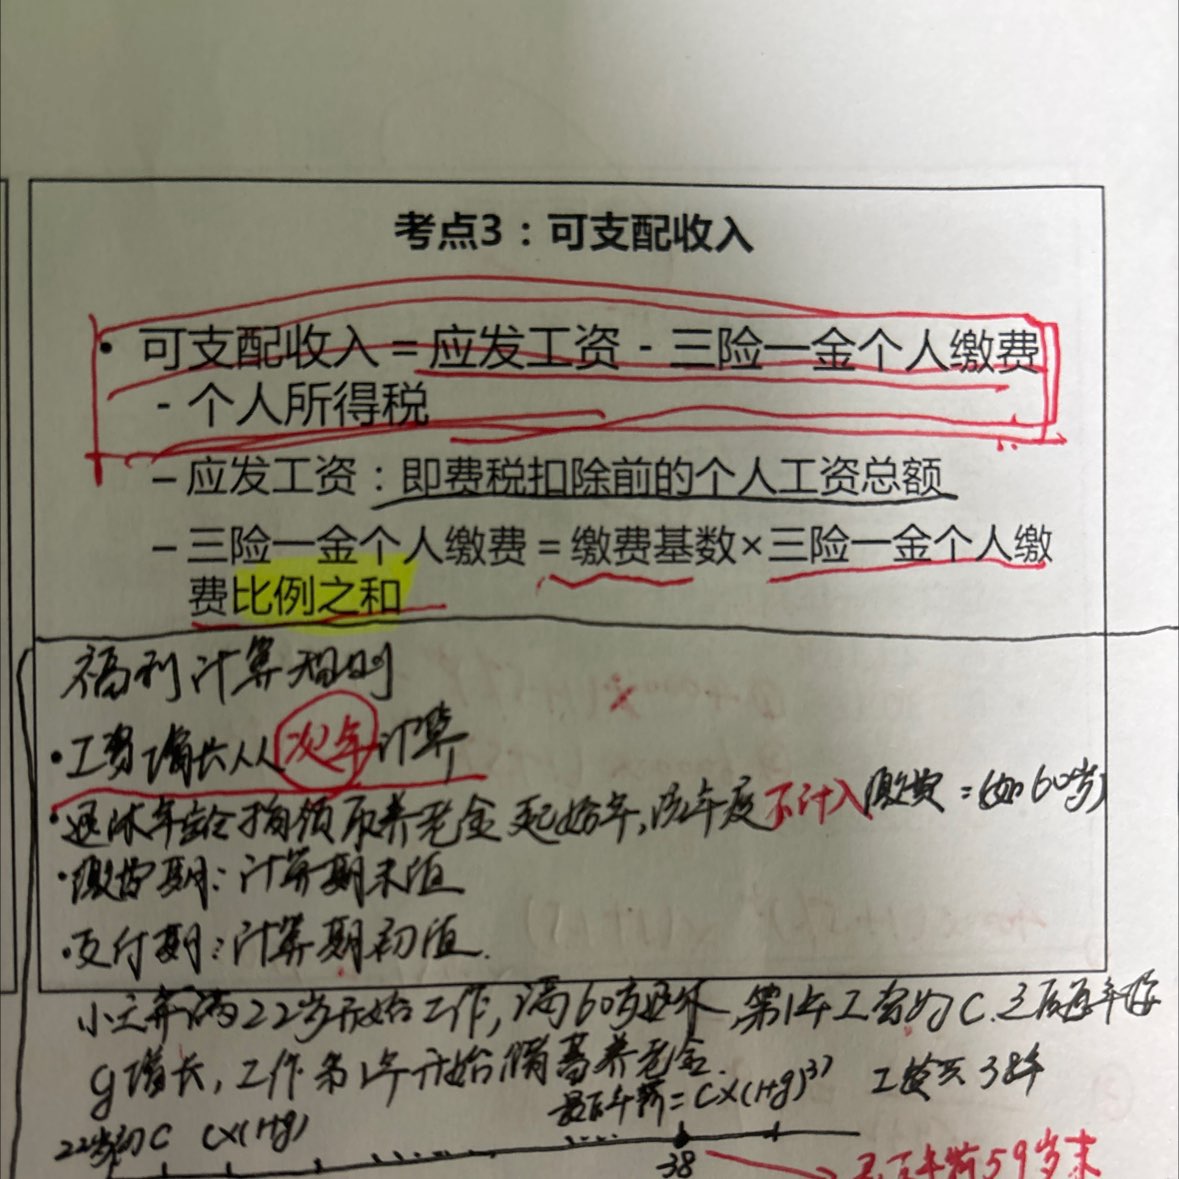 考点3：可支配收入
• 可支配收入 = 应发工资 - 三险一金个人缴费
- 个人所得税
– 应发工资：即费税扣除前的个人工资总额
– 三险一金个人缴费 = 缴费基数×三险一金个人缴
费比例之和
福利计算规则
•工资增长从次年计算
•退休年龄指领取养老金起始年,该年度不计入缴费 (如60岁)
•缴费期：计算期末值
•支付期：计算期初值.
小王年满22岁开始工作,满60岁退休,第1年工资为C.之后每年按
g增长,工作第1年开始储蓄养老金.
最后年薪=C×(1+g)³⁷ 工龄共38年
22岁初C C×(1+g)
38
最后年薪59岁末